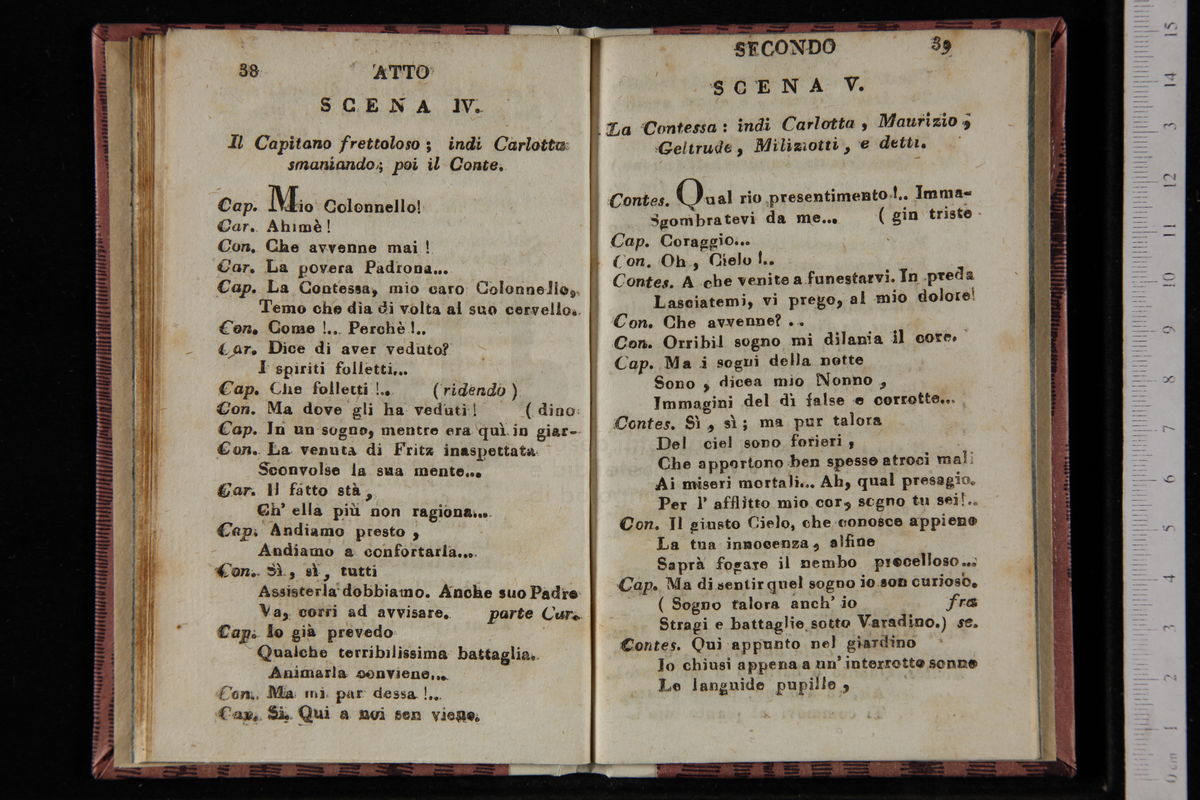 38 ATTO
SCENA IV.
Il Capitano frettoloso ; indi Carlotta
smaniando ; poi il Conte.
Cap. Mio Colonnello!
Car. Ahimè !
Con. Che avvenne mai !
Car. La povera Padrona...
Cap. La Contessa, mio caro Colonnello,
Temo che dia di volta al suo cervello.
Con. Come !.. Perchè !..
Car. Dice di aver veduto?
I spiriti folletti...
Cap. Che folletti !.. (ridendo)
Con. Ma dove gli ha veduti ! ( dino
Cap. In un sogno, mentre era quì in giar-
Con. La venuta di Fritz inaspettata
Sconvolse la sua mente...
Car. Il fatto stà,
Ch' ella più non ragiona...
Cap. Andiamo presto ,
Andiamo a confortarla...
Con. Sì, sì, tutti
Assisterla dobbiamo. Anche suo Padre
Va, corri ad avvisare. parte Car.
Cap. Io già prevedo
Qualche terribilissima battaglia.
Animarla conviene...
Con. Ma mi par dessa !..
Cap. Si. Qui a noi sen viene.
SECONDO 39
SCENA V.
La Contessa : indi Carlotta , Maurizio ,
Geltrude, Miliziotti, e detti.
Contes. Qual rio presentimento !.. Imma-
Sgombratevi da me... ( gin triste
Cap. Coraggio...
Con. Oh , Cielo !..
Contes. A che venite a funestarvi. In preda
Lasciatemi, vi prego, al mio dolore!
Con. Che avvenne? ..
Con. Orribil sogno mi dilania il core.
Cap. Ma i sogni della notte
Sono , dicea mio Nonno ,
Immagini del dì false e corrotte...
Contes. Sì, sì ; ma pur talora
Del ciel sono forieri ,
Che apportono ben spesso atroci mali
Ai miseri mortali... Ah, qual presagio.
Per l' afflitto mio cor, sogno tu sei!..
Con. Il giusto Cielo, che conosce appieno
La tua innocenza, alfine
Saprà fogare il nembo procelloso...
Cap. Ma di sentir quel sogno io son curioso.
( Sogno talora anch' io fra
Stragi e battaglie sotto Varadino.) se.
Contes. Qui appunto nel giardino
Io chiusi appena a un' interrotto sonno
Le languide pupille ,
15
14
13
12
11
10
9
8
7
6
5
4
3
2
1
0 cm